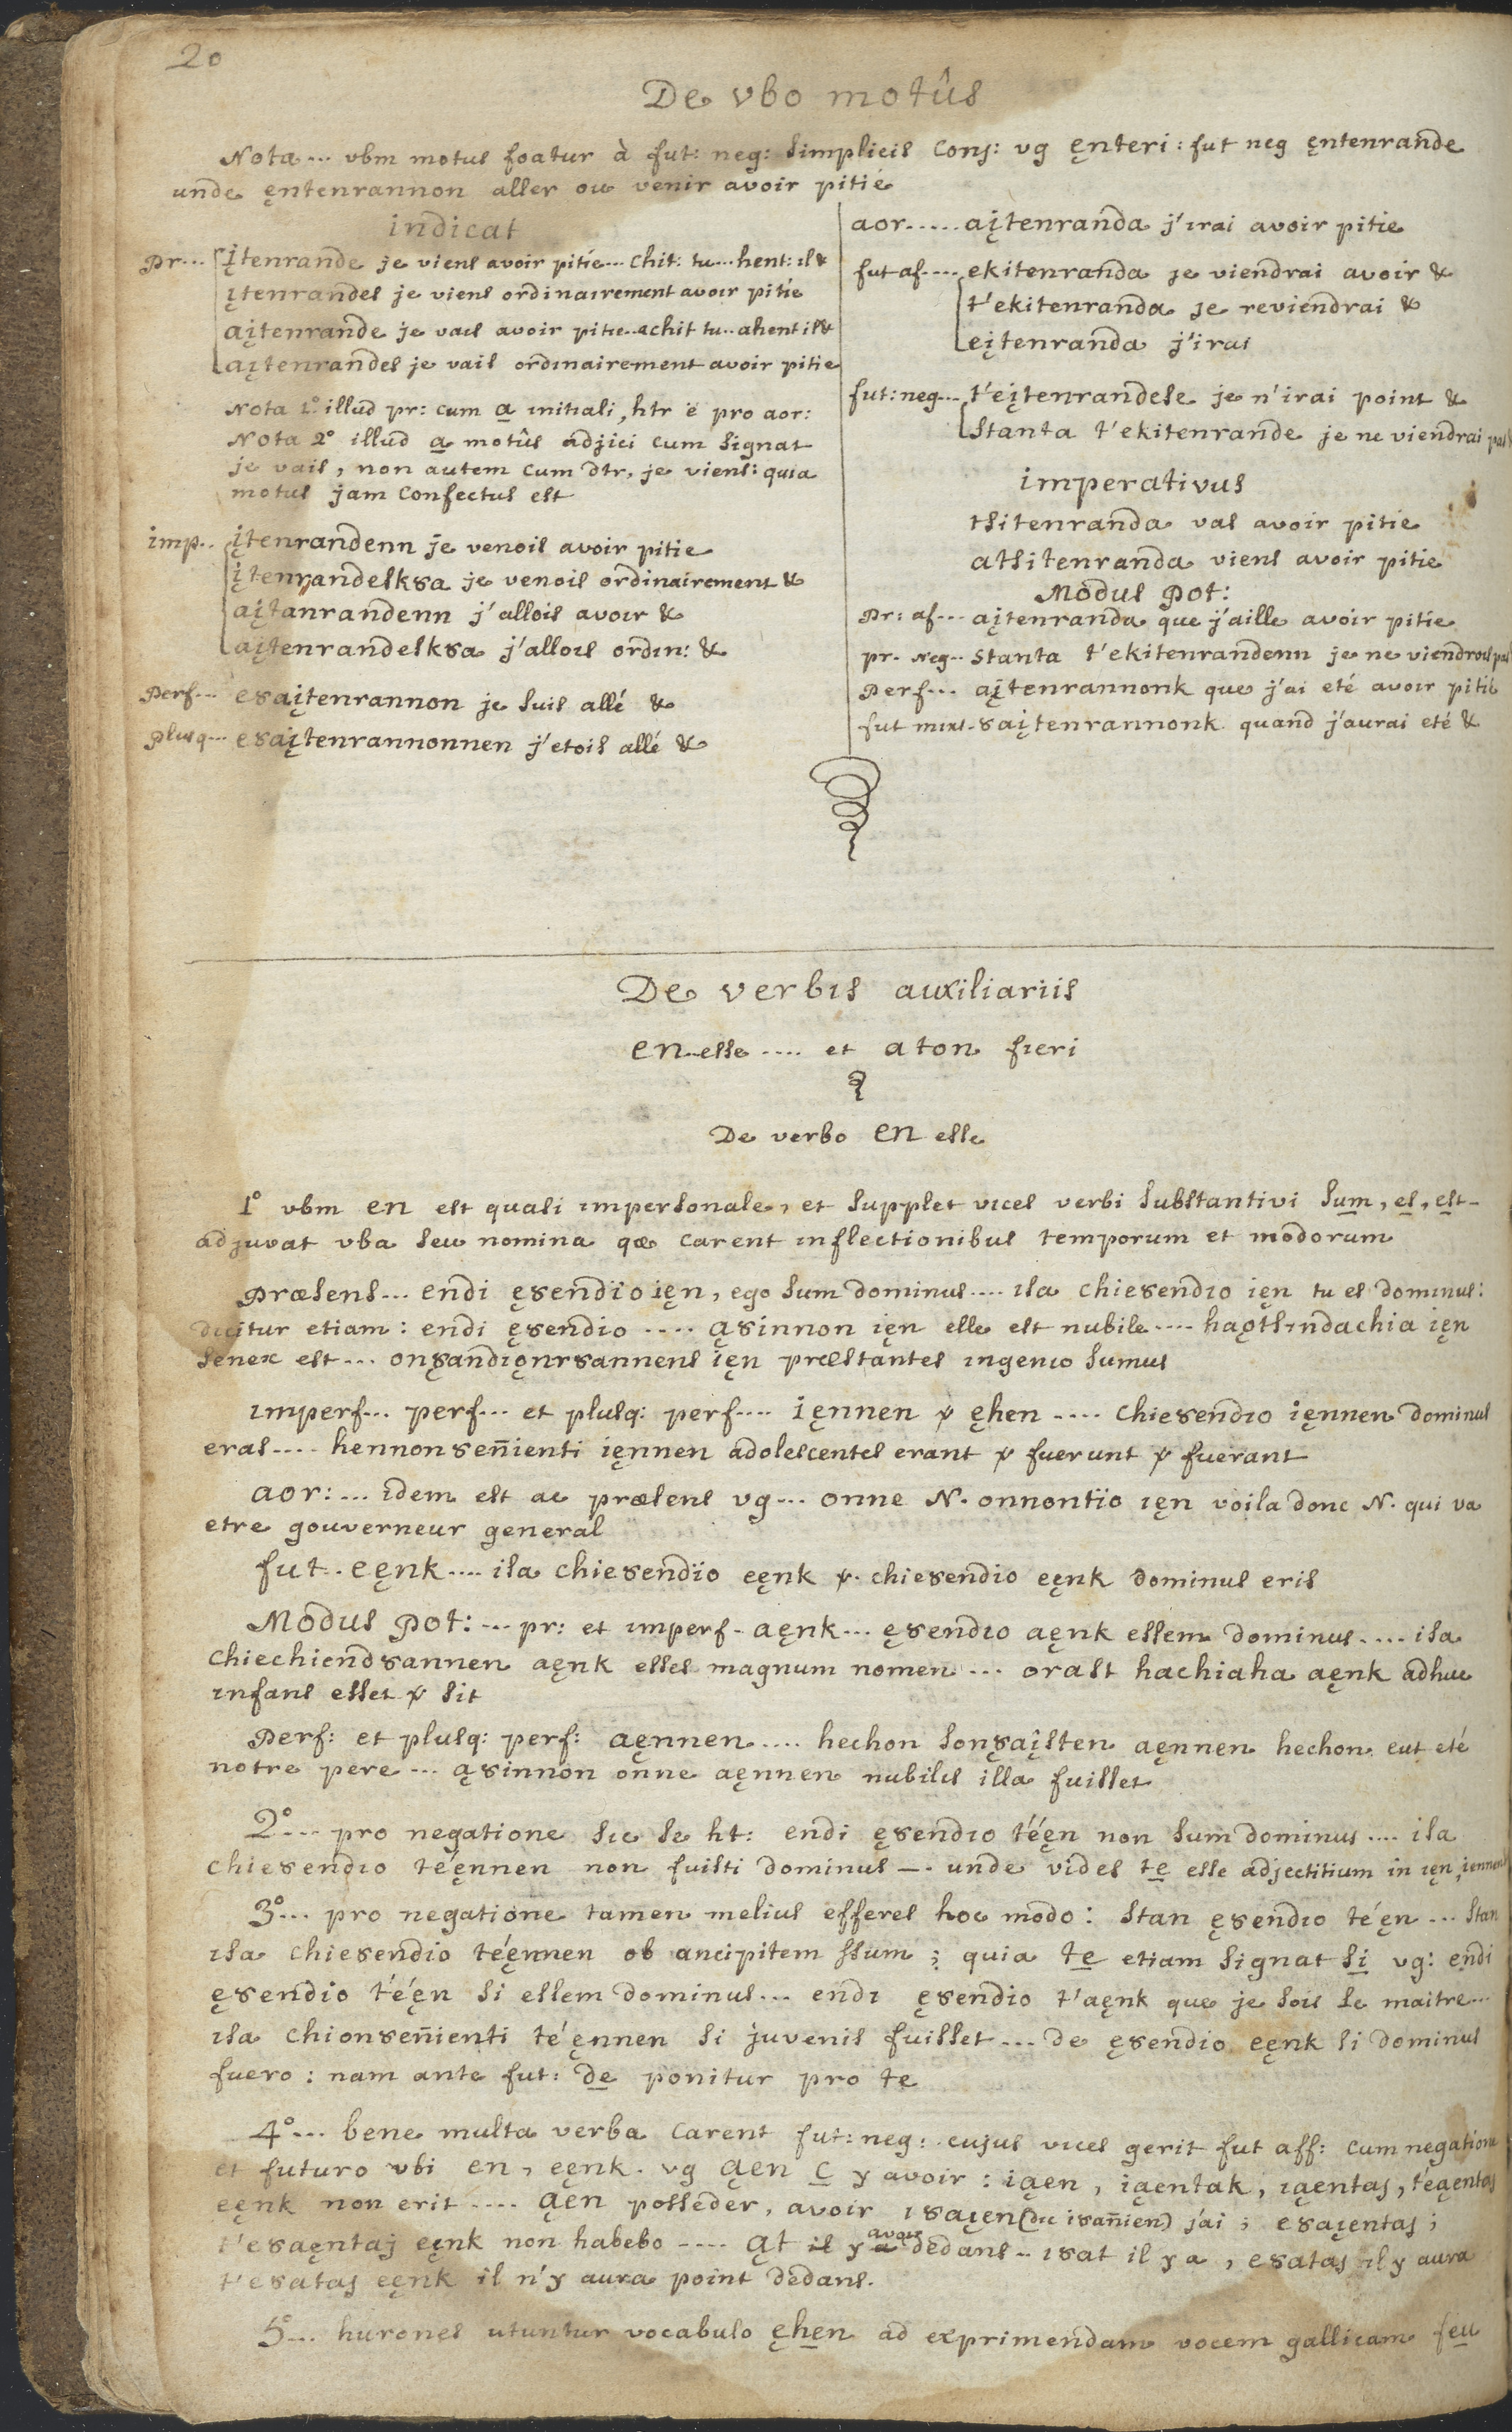 20
De vbo motûs
Nota... vbm motus foatur à fut: neg: simplicis conj: vg ęnteri: fut neg ęntenrande
unde ęntenrannon aller ou venir avoir pitié
indicat
pr... įtenrande je viens avoir pitié... chit: tu... hent: il &
įtenrandes je viens ordinairement avoir pitié
aįtenrande je vais avoir pitie.. achit tu.. ahent il &
aįtenrandes je vais ordinairement avoir pitie
Nota 1º illud pr: cum a initiali, htr ē pro aor:
Nota 2º illud a motûs adjici cum signat
je vais, non autem cum dtr, je viens: quia
motus jam confectus est
imp.. įtenrandenn je venois avoir pitie
įtenrandesk8a je venois ordinairement &
aįtanrandenn j'allois avoir &
aįtenrandesk8a j'allois ordin: &
perf... e8aįtenrannon je suis allé &
plusq... e8aįtenrannonnen j'etois allé &
aor..... aįtenranda j'irai avoir pitie
fut af.... ekitenranda je viendrai avoir &
t'ekitenranda je reviendrai &
eįtenranda j'irai
fut: neg... t'eįtenrandese je n'irai point &
stanta t'ekitenrande je ne viendrai pas
imperativus
tsitenranda vas avoir pitie
atsitenranda viens avoir pitie
Modus pot:
pr: af... aįtenranda que j'aille avoir pitie
pr. neg.. stanta t'ekitenrandenn je ne viendrois pas
perf... aįtenrannonk que j'ai eté avoir pitié
fut mixt. 8aįtenrannonk quand j'aurai eté &
De verbis auxiliariis
en esse .... et aton fieri
De verbo en esse
1º vbm en est quasi impersonale, et supplet vices verbi substantivi sum, es, est-
adjuvat vba seu nomina qæ carent inflectionibus temporum et modorum
præsens... endi ę8endio ięn, ego sum dominus.... isa chie8endio ięn tu es dominus:
dicitur etiam: endi ę8endio .... ą8innon ięn elle est nubile .... haǫtsindachia ięn
senex est... on8andiǫnr8annens ięn præstantes ingenio sumus
imperf... perf... et plusq: perf.... ięnnen ỿ ęhen .... chie8endio ięnnen dominus
eras.... hennon8eñienti ięnnen adolescentes erant ỿ fuerunt ỿ fuerant
aor: ... idem est ac præsens vg... onne N. onnontio ięn voila donc N. qui va
etre gouverneur general
fut. eęnk.... isa chie8endio eęnk ỿ. chie8endio eęnk dominus eris
Modus pot: ... pr: et imperf. aęnk... ę8endio aęnk essem dominus.... isa
chiechiend8annen aęnk esses magnum nomen... orast hachiaha aęnk adhuc
infans esset ỿ sit
Perf: et plusq: perf: aęnnen.... hechon son8aįsten aęnnen hechon eut eté
notre pere... ą8innon onne aęnnen nubilis illa fuisset
2º... pro negatione sic se ht: endi ę8endio t'éęn non sum dominus.... isa
chie8endio téęnnen non fuisti dominus —. unde vides te esse adjectitium in ięn, iennen
3º... pro negatione tamen melius efferes hoc modo: stan ę8endio té'ęn... stan
isa chie8endio téęnnen ob ancipitem ssum; quia te etiam signat si vg: endi
ę8endio t'éęn si essem dominus... endi ę8endio t'aęnk que je sois le maitre...
isa chion8eñienti té'ęnnen si juvenis fuisset... de ę8endio eęnk si dominus
fuero: nam ante fut: de ponitur pro te
4º... bene multa verba carent fut: neg: cujus vices gerit fut aff: cum negatione
et futuro vbi en, eęnk. vg ąen c y avoir: iąen, iąentak, iąentaj, t'eąentaj
eęnk non erit.... ąen posseder, avoir i8aįen (dic i8añien) j'ai; e8aįentaj;
t'e8aęntaj eęnk non habebo .... ąt il y avoir dedans.. i8at il y a, e8ataj il y aura
t'e8ataj eęnk il n'y aura point dedans.
5º... hurones utuntur vocabulo ęhen ad exprimendam vocem gallicam feu